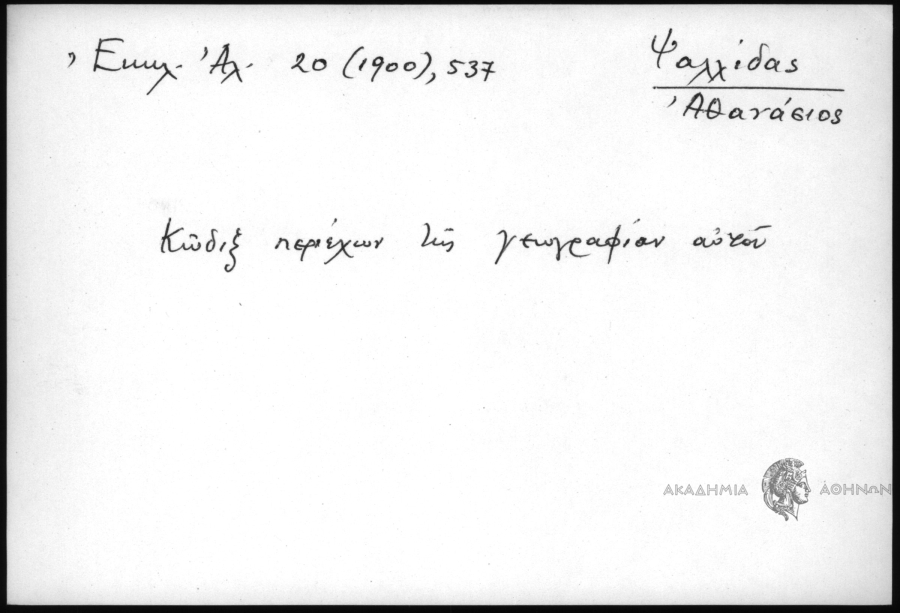 Ἐκκλ. Ἀλ. 20 (1900), 537
Ψαλλίδας
Ἀθανάσιος
Κῶδιξ περιέχων τὴν γεωγραφίαν αὐτοῦ
ΑΚΑΔΗΜΙΑ ΑΘΗΝΩΝ